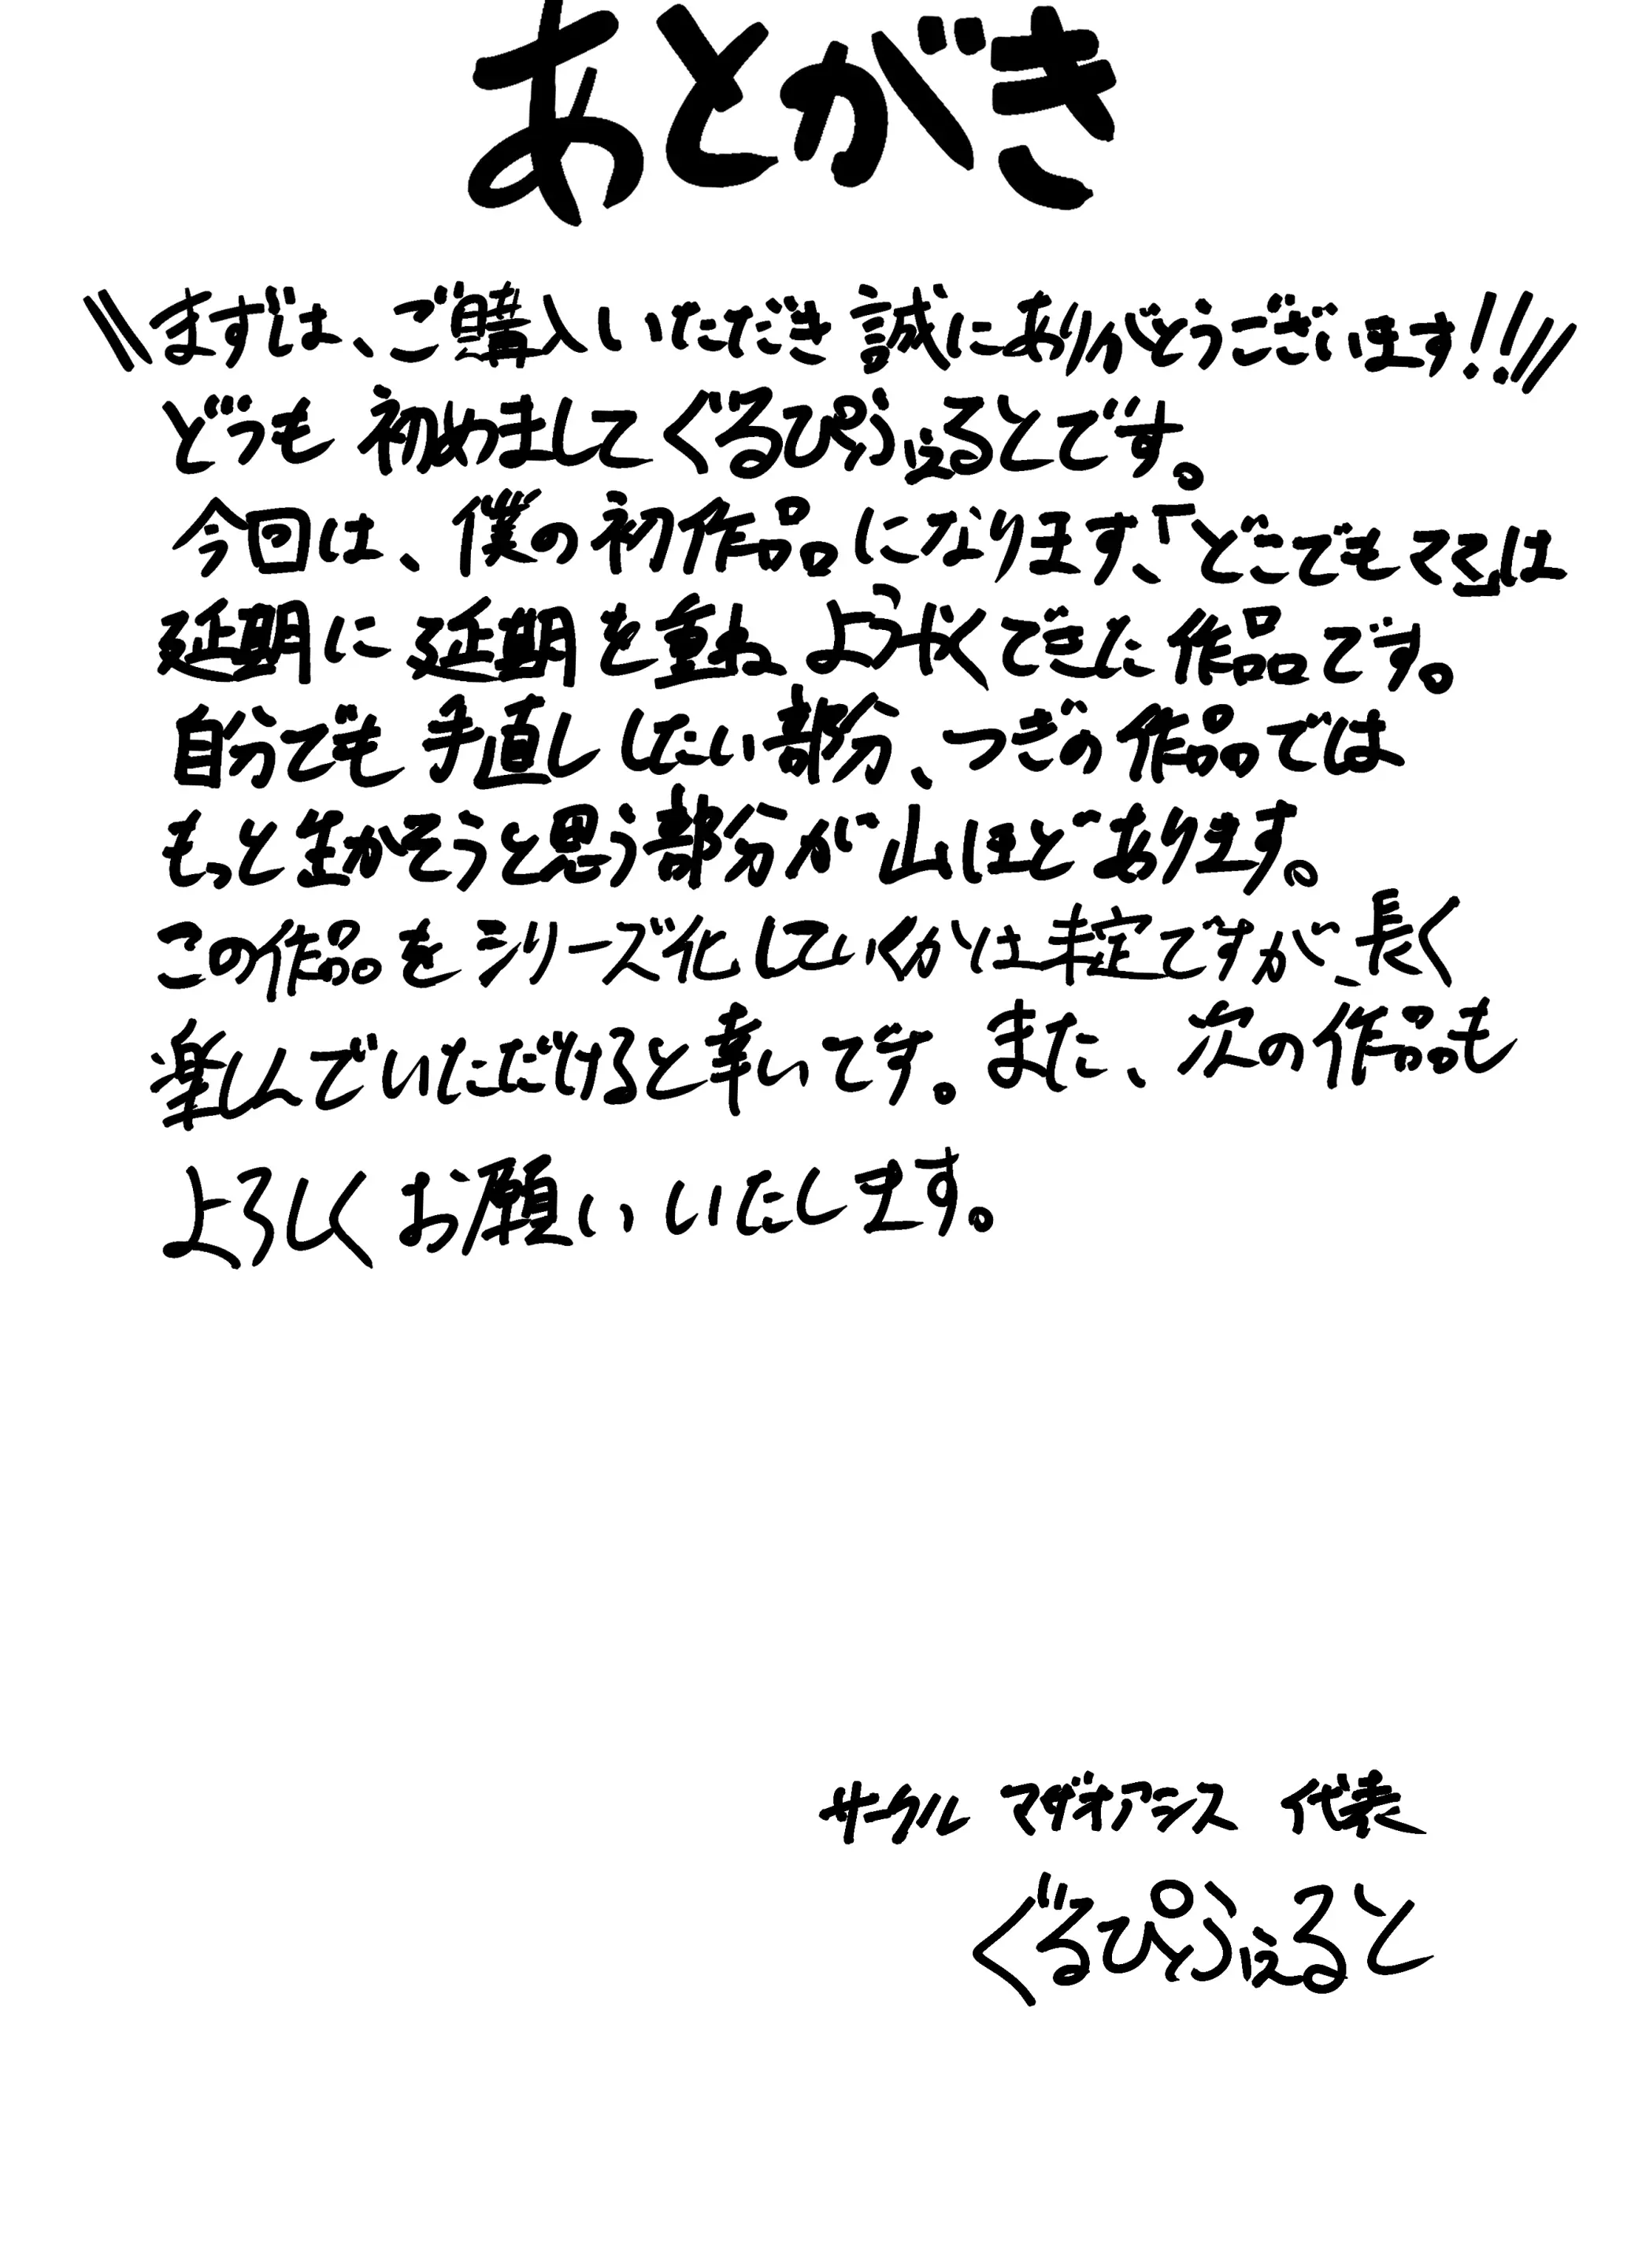 あとがき
\\まずは、ご購入いただき誠にありがとうございます!!//
どうも初めましてぐるぴぷふぇるとです。
今回は、僕の初作品になります、「どこでもマミ」は
延期に延期を重ねようやくできた作品です。
自分でも手直ししたい部分、つぎの作品では
もっと生かそうと思う部分が山ほどあります。
この作品をシリーズ化していくかは未定ですが、長く
楽しんでいただけると幸いです。また、次の作品も
よろしくお願いいたします。
サークル マダオアシス 代表